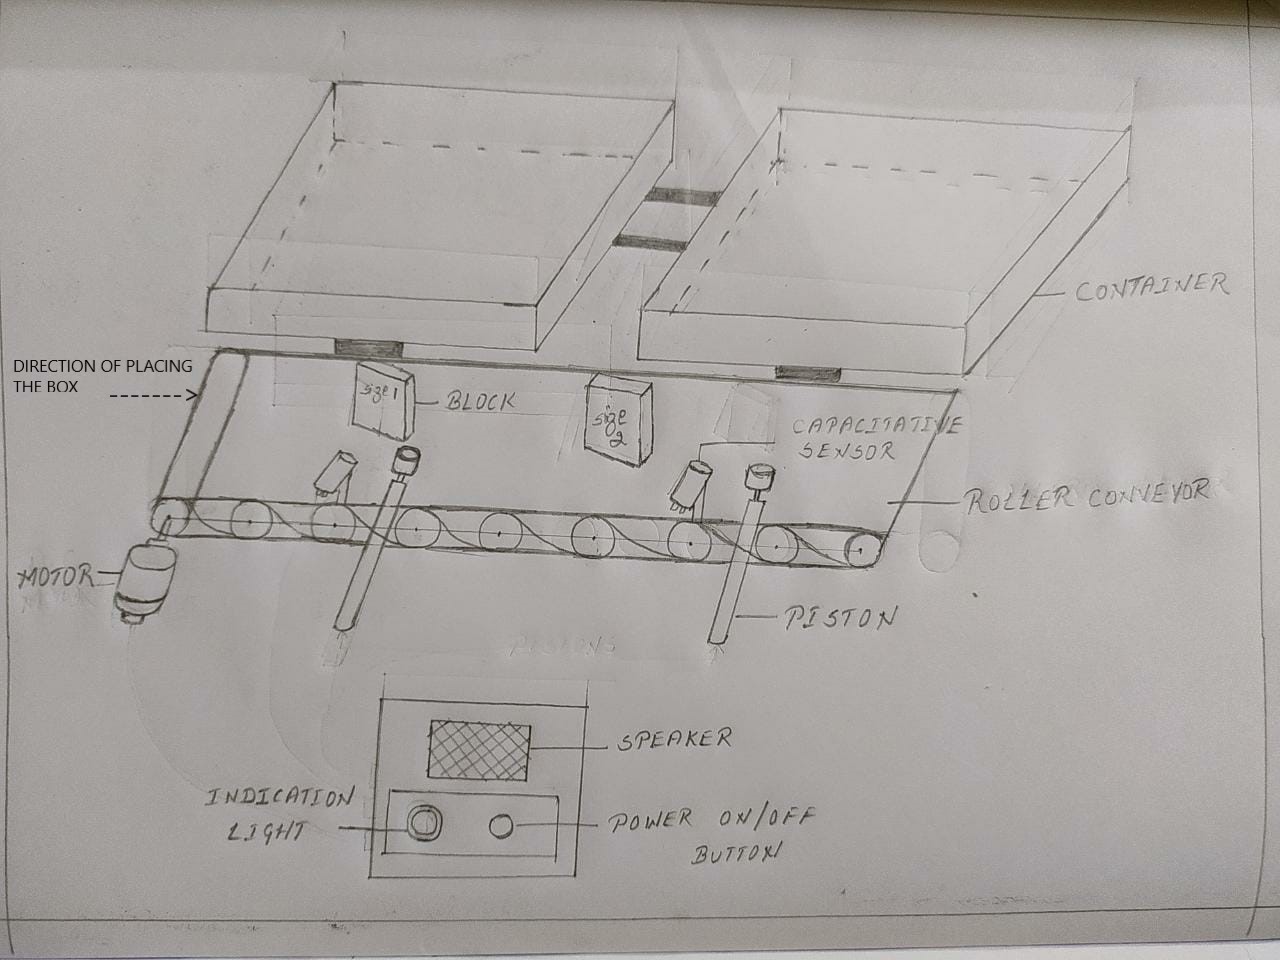 DIRECTION OF PLACING
THE BOX
CONTAINER
size 1
BLOCK
size
2
CAPACITATIVE
SENSOR
ROLLER CONVEYOR
MOTOR
PISTON
PISTONS
SPEAKER
INDICATION
LIGHT
POWER ON/OFF
BUTTON